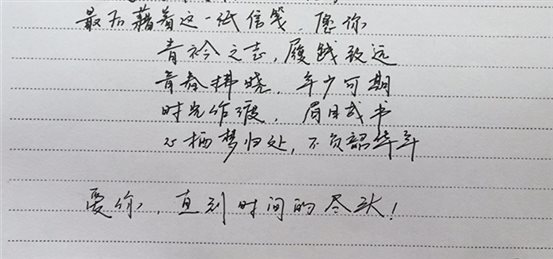 最后藉着这一纸信笺，愿你
青衿之志，履践致远
青春拂晓，年少可期
时光作渡，眉目成书
心栖梦归处，不负韶华年
爱你，直到时间的尽头！